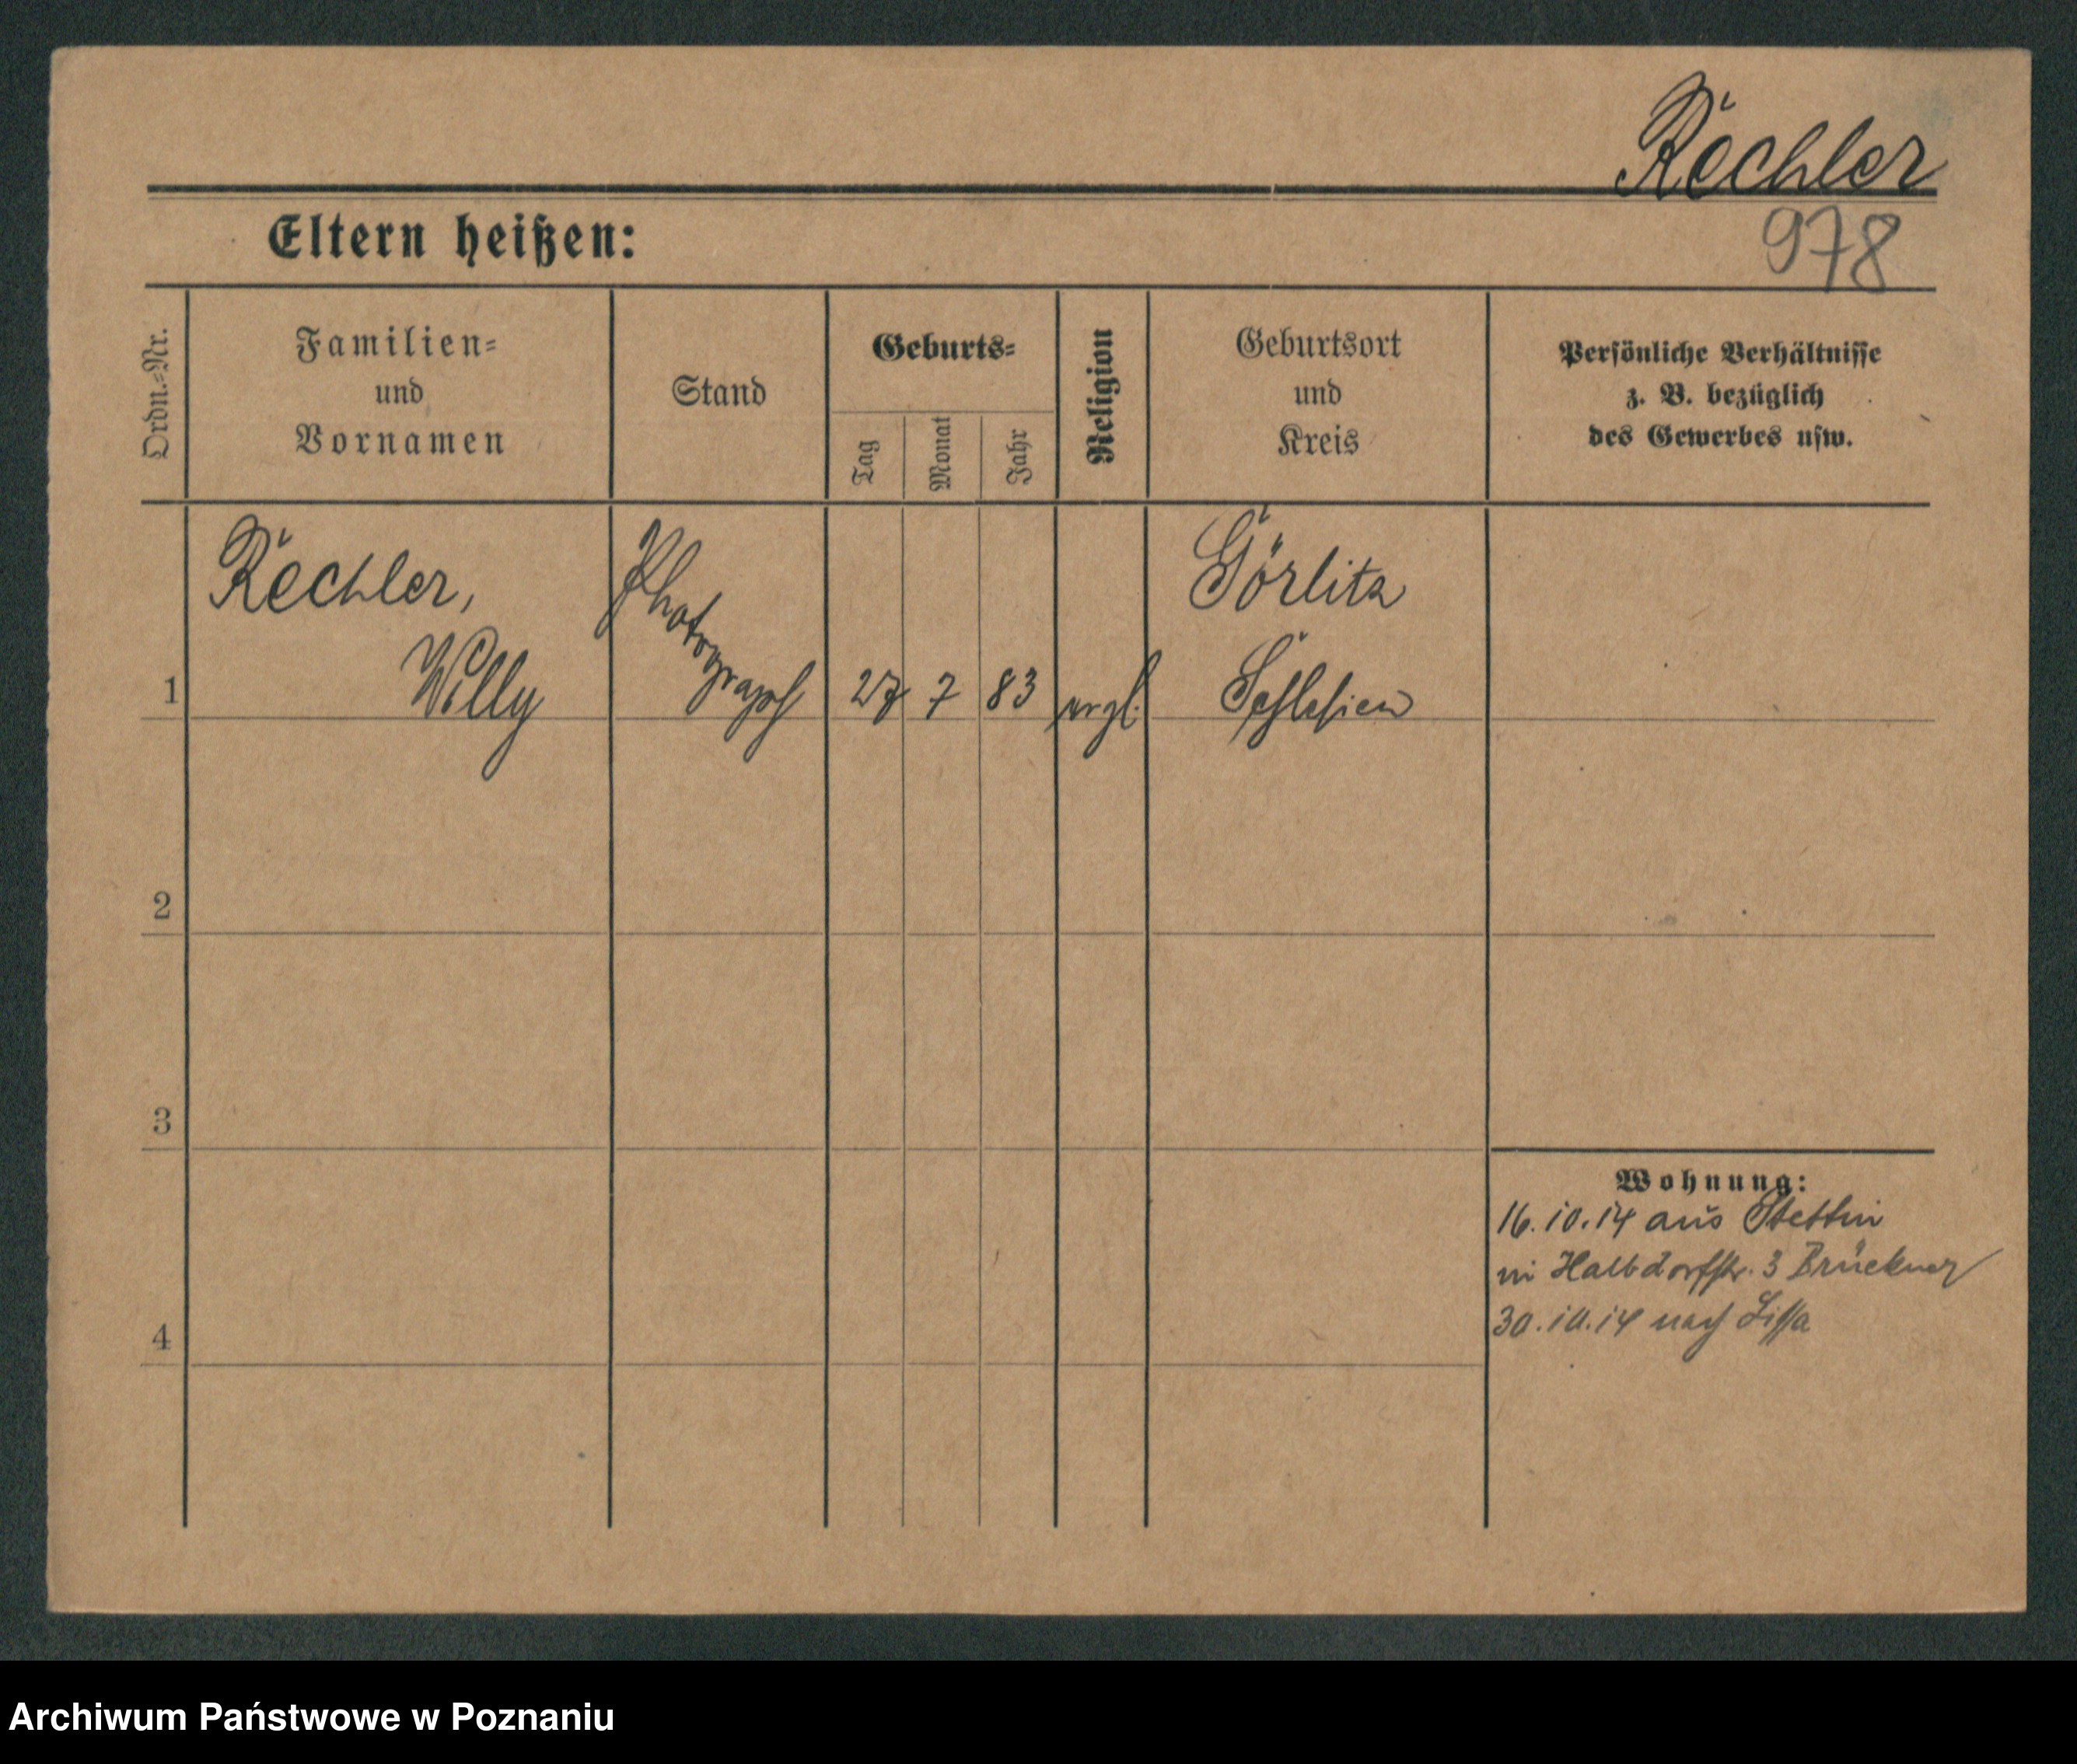 Rechler
978
Eltern heißen:
Ordn.-Nr.
Familien-
und
Vornamen
Stand
Geburts-
Tag
Monat
Jahr
Religion
Geburtsort
und
Kreis
Persönliche Verhältnisse
z. B. bezüglich
des Gewerbes usw.
1
Rechler,
Willy
Photograph
27
7
83
evgl.
Görlitz
Schlesien
2
3
4
Wohnung:
16.10.14 aus Stettin
in Halbdorfstr. 3 Brückner
30.10.14 nach Lissa
Archiwum Państwowe w Poznaniu